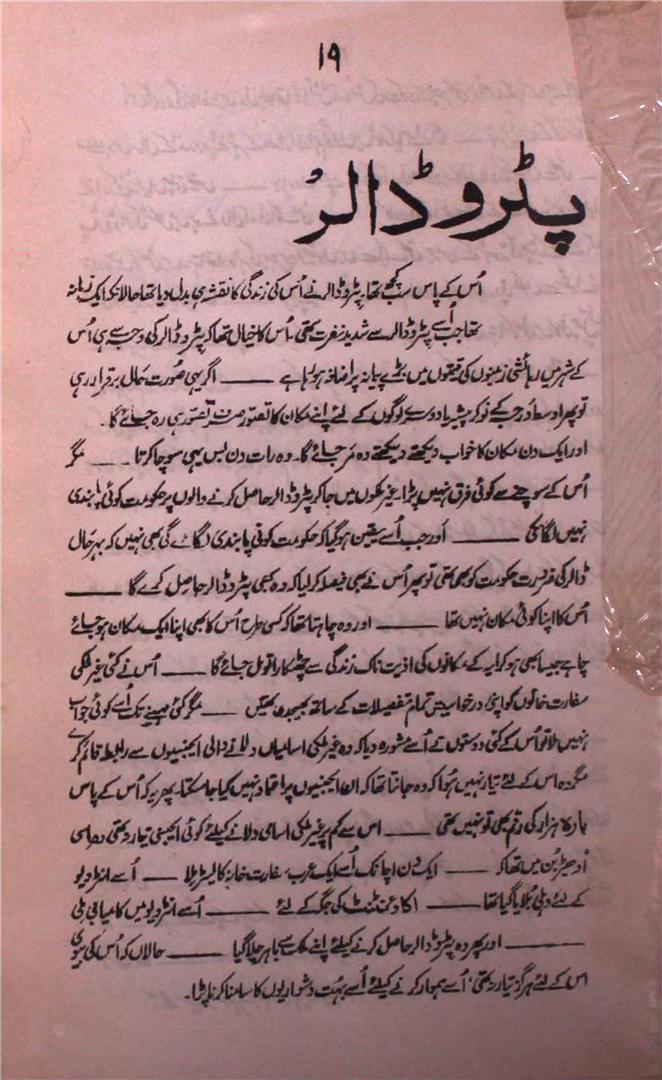 ۱۹
پٹرو ڈالر
اُس کے پاس سب کچھ تھا، پٹرو ڈالر نے اُس کی زندگی کا نقشہ ہی بدل دیا تھا حالانکہ ایک زمانہ
تھا جب اُسے پٹرو ڈالر سے شدید نفرت تھی۔ اُس کا خیال تھا کہ پٹرو ڈالر کی وجہ سے ہی اُس
کے شہر میں رہائشی زمینوں کی قیمتوں میں بڑے پیمانہ پر اضافہ ہو رہا ہے ــــــ اگر یہی صورت حال برقرار رہی
تو پھر اوسط درجہ کے نوکر پیشہ یا دوسرے لوگوں کے لئے اپنے مکان کا تصوّر صرف تصوّر ہی رہ جائے گا۔
اور ایک دن مکان کا خواب دیکھتے دیکھتے وہ مر جائے گا۔ وہ رات دن بس یہی سوچا کرتا ــــ مگر
اُس کے سوچنے سے کوئی فرق نہیں پڑا، غیر ملکوں میں جا کر پٹرو ڈالر حاصل کرنے والوں پر حکومت کوئی پابندی
نہیں لگا سکی ــــــــ اور جب اُسے یقین ہو گیا کہ حکومت کوئی پابندی لگائے گی بھی نہیں کہ بہر حال
ڈالر کی ضرورت حکومت کو بھی تھی تو پھر اُس نے بھی فیصلہ کر لیا کہ وہ بھی پٹرو ڈالر حاصل کرے گا ــــــ
اُس کا اپنا کوئی مکان نہیں تھا ــــــ اور وہ چاہتا تھا کہ کسی طرح اُس کا بھی اپنا ایک مکان ہو جائے
چاہے جیسا بھی ہو کرایہ کے مکانوں کی اذیت ناک زندگی سے چھٹکارا تو مل جائے گا ــــــ اُس نے کئی غیر ملکی
سفارت خانوں کو اپنی درخواستیں تمام تفصیلات کے ساتھ بھیج دی تھیں ــــ مگر کئی مہینے تک اُسے کوئی جواب
نہیں ملا تو اُس کے کئی دوستوں نے اُسے مشورہ دیا کہ وہ غیر ملکی اسامیاں دلانے والی ایجنسیوں سے رابطہ قائم کرے
مگر وہ اس کے لئے تیار نہیں ہوا کہ وہ جانتا تھا کہ ان ایجنسیوں پر اعتماد نہیں کیا جا سکتا۔ پھر یہ کہ اُس کے پاس
بارہ ہزار کی رقم بھی تو نہیں تھی ــــــ اس سے کم پر غیر ملکی اسامی دلانے کیلئے کوئی ایجنسی تیار نہ تھی وہ اسی
اُدھیڑ بُن میں تھا کہ ــــــ ایک دن اچانک اُسے ایک عرب سفارت خانہ کا لیٹر ملا ــــــ اُسے انٹرویو
کے لئے دہلی بُلایا گیا تھا ــــــ اکاؤنٹنٹ کی جگہ کے لئے ــــــ اُسے انٹرویو میں کامیابی ملی
ــــــــ اور پھر وہ پٹرو ڈالر حاصل کرنے کیلئے اپنے ملک سے باہر چلا گیا ــــــ حالاں کہ اُس کی بیوی
اس کے لئے ہرگز تیار نہ تھی، اُسے ہموار کرنے کیلئے اُسے بہت دشواریوں کا سامنا کرنا پڑا۔